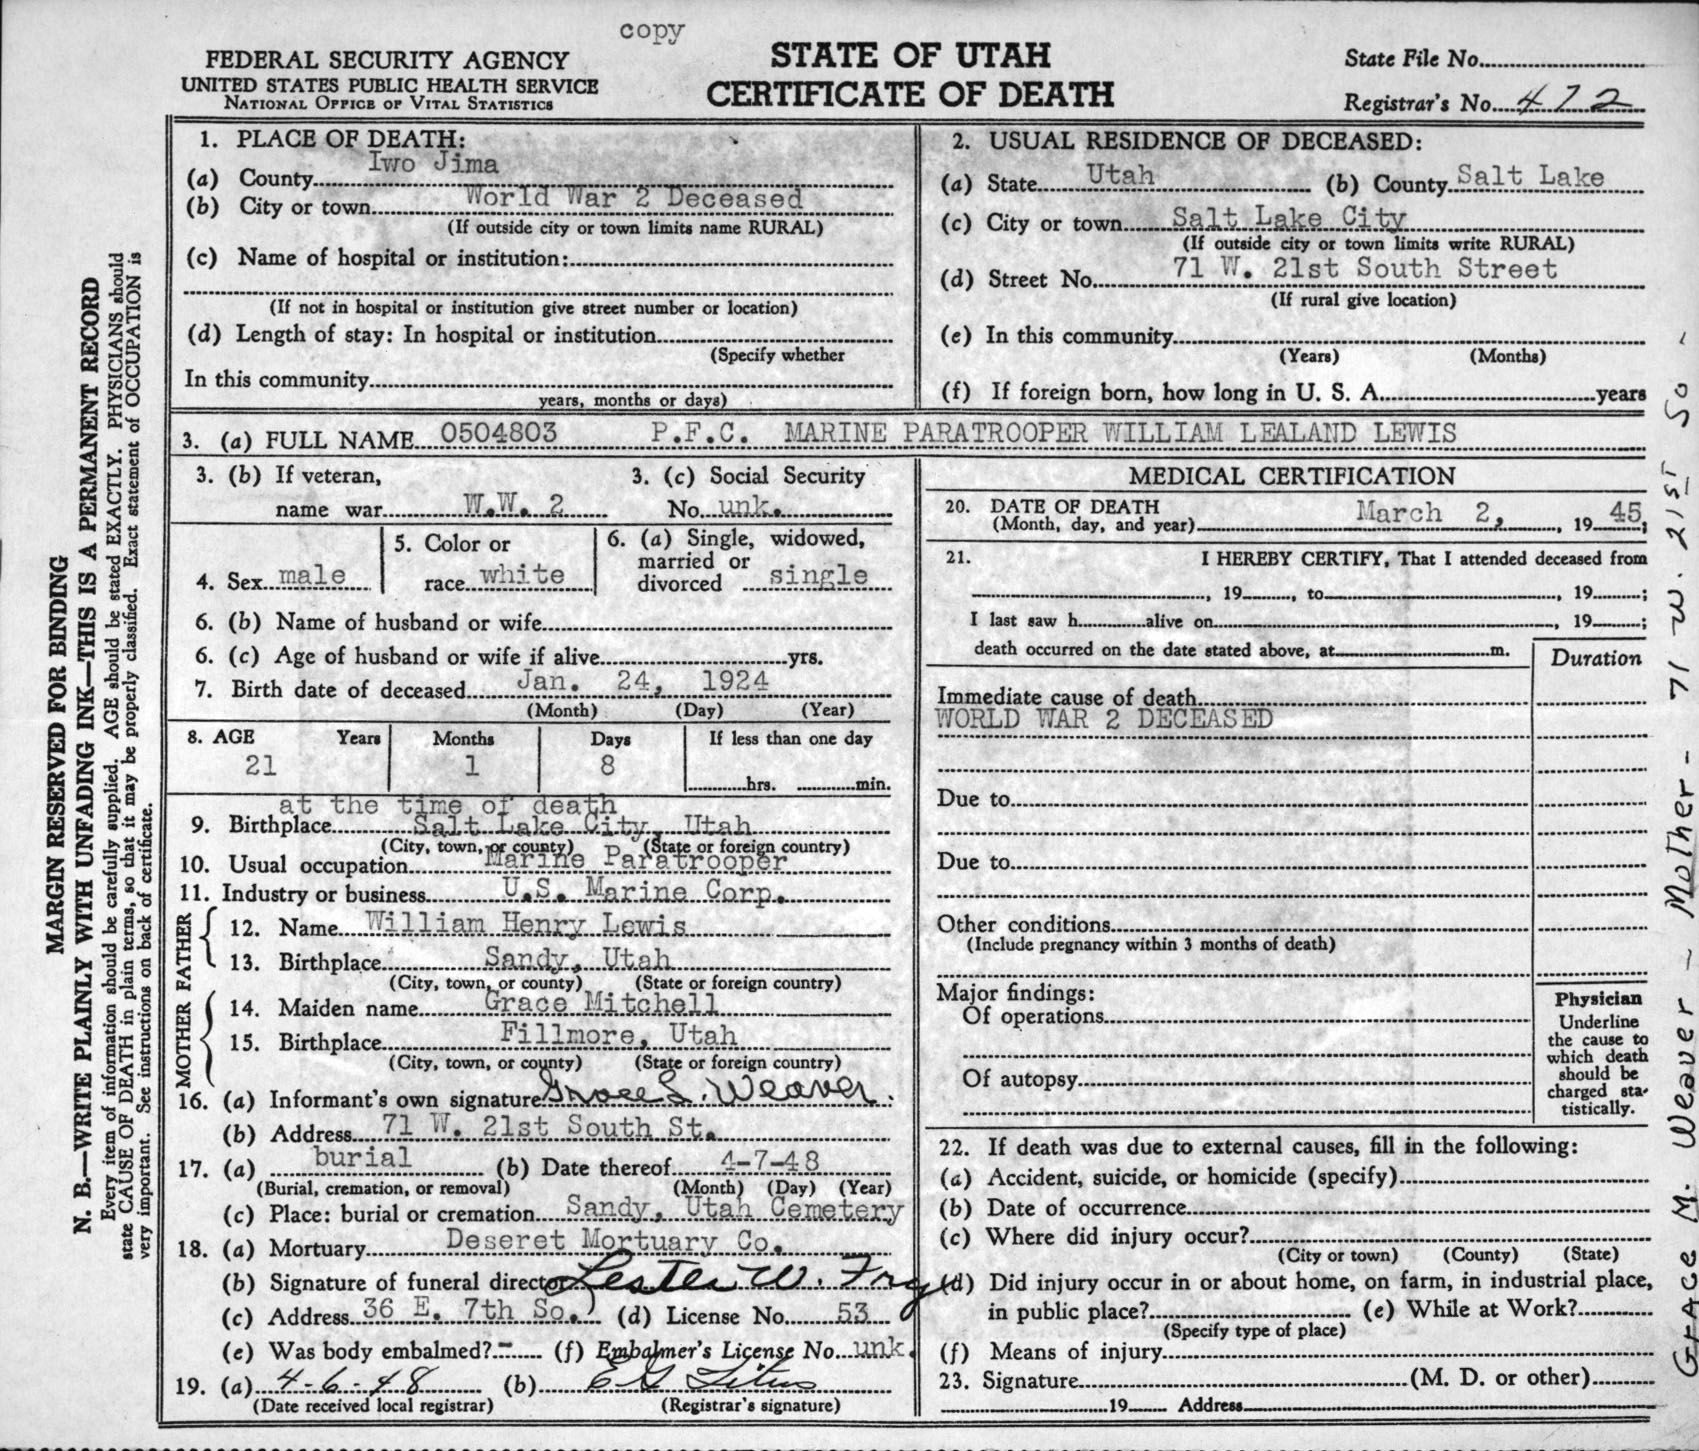 copy
FEDERAL SECURITY AGENCY
UNITED STATES PUBLIC HEALTH SERVICE
NATIONAL OFFICE OF VITAL STATISTICS
STATE OF UTAH
CERTIFICATE OF DEATH
State File No.
Registrar's No. 472
1. PLACE OF DEATH:
(a) County Iwo Jima
(b) City or town World War 2 Deceased
(If outside city or town limits name RURAL)
(c) Name of hospital or institution:
(If not in hospital or institution give street number or location)
(d) Length of stay: In hospital or institution
(Specify whether
In this community
years, months or days)
2. USUAL RESIDENCE OF DECEASED:
(a) State Utah (b) County Salt Lake
(c) City or town Salt Lake City
(If outside city or town limits write RURAL)
(d) Street No. 71 W. 21st South Street
(If rural give location)
(e) In this community
(Years) (Months)
(f) If foreign born, how long in U. S. A. years
3. (a) FULL NAME 0504803 P.F.C. MARINE PARATROOPER WILLIAM LEALAND LEWIS
3. (b) If veteran,
name war W.W. 2
3. (c) Social Security
No. unk.
4. Sex male
5. Color or
race white
6. (a) Single, widowed,
married or
divorced single
6. (b) Name of husband or wife
6. (c) Age of husband or wife if alive yrs.
7. Birth date of deceased Jan. 24, 1924
(Month) (Day) (Year)
8. AGE Years Months Days If less than one day
21 1 8
hrs. min.
at the time of death
9. Birthplace Salt Lake City, Utah
(City, town, or county) (State or foreign country)
10. Usual occupation Marine Paratrooper
11. Industry or business U.S. Marine Corp.
FATHER
12. Name William Henry Lewis
13. Birthplace Sandy, Utah
(City, town, or county) (State or foreign country)
MOTHER
14. Maiden name Grace Mitchell
15. Birthplace Fillmore, Utah
(City, town, or county) (State or foreign country)
16. (a) Informant's own signature Grace L. Weaver
(b) Address 71 W. 21st South St.
17. (a) burial (b) Date thereof 4-7-48
(Burial, cremation, or removal) (Month) (Day) (Year)
(c) Place: burial or cremation Sandy, Utah Cemetery
18. (a) Mortuary Deseret Mortuary Co.
(b) Signature of funeral director Lester W. Frye
(c) Address 36 E. 7th So. (d) License No. 53
(e) Was body embalmed? - (f) Embalmer's License No. unk.
19. (a) 4-6-48 (b) E G Titus
(Date received local registrar) (Registrar's signature)
MEDICAL CERTIFICATION
20. DATE OF DEATH
(Month, day, and year) March 2, , 19 45;
21. I HEREBY CERTIFY, That I attended deceased from
, 19 , to , 19 ;
I last saw h alive on , 19 ;
death occurred on the date stated above, at m.
Duration
Immediate cause of death
WORLD WAR 2 DECEASED
Due to
Due to
Other conditions
(Include pregnancy within 3 months of death)
Major findings:
Of operations
Of autopsy
Physician
Underline
the cause to
which death
should be
charged sta-
tistically.
22. If death was due to external causes, fill in the following:
(a) Accident, suicide, or homicide (specify)
(b) Date of occurrence
(c) Where did injury occur?
(City or town) (County) (State)
(d) Did injury occur in or about home, on farm, in industrial place,
in public place? (e) While at Work?
(Specify type of place)
(f) Means of injury
23. Signature (M. D. or other)
19 Address
MARGIN RESERVED FOR BINDING
N. B.—WRITE PLAINLY WITH UNFADING INK—THIS IS A PERMANENT RECORD
Every item of information should be carefully supplied. AGE should be stated EXACTLY. PHYSICIANS should
state CAUSE OF DEATH in plain terms, so that it may be properly classified. Exact statement of OCCUPATION is
very important. See instructions on back of certificate.
Grace M. Weaver - Mother - 71 W. 21st So -